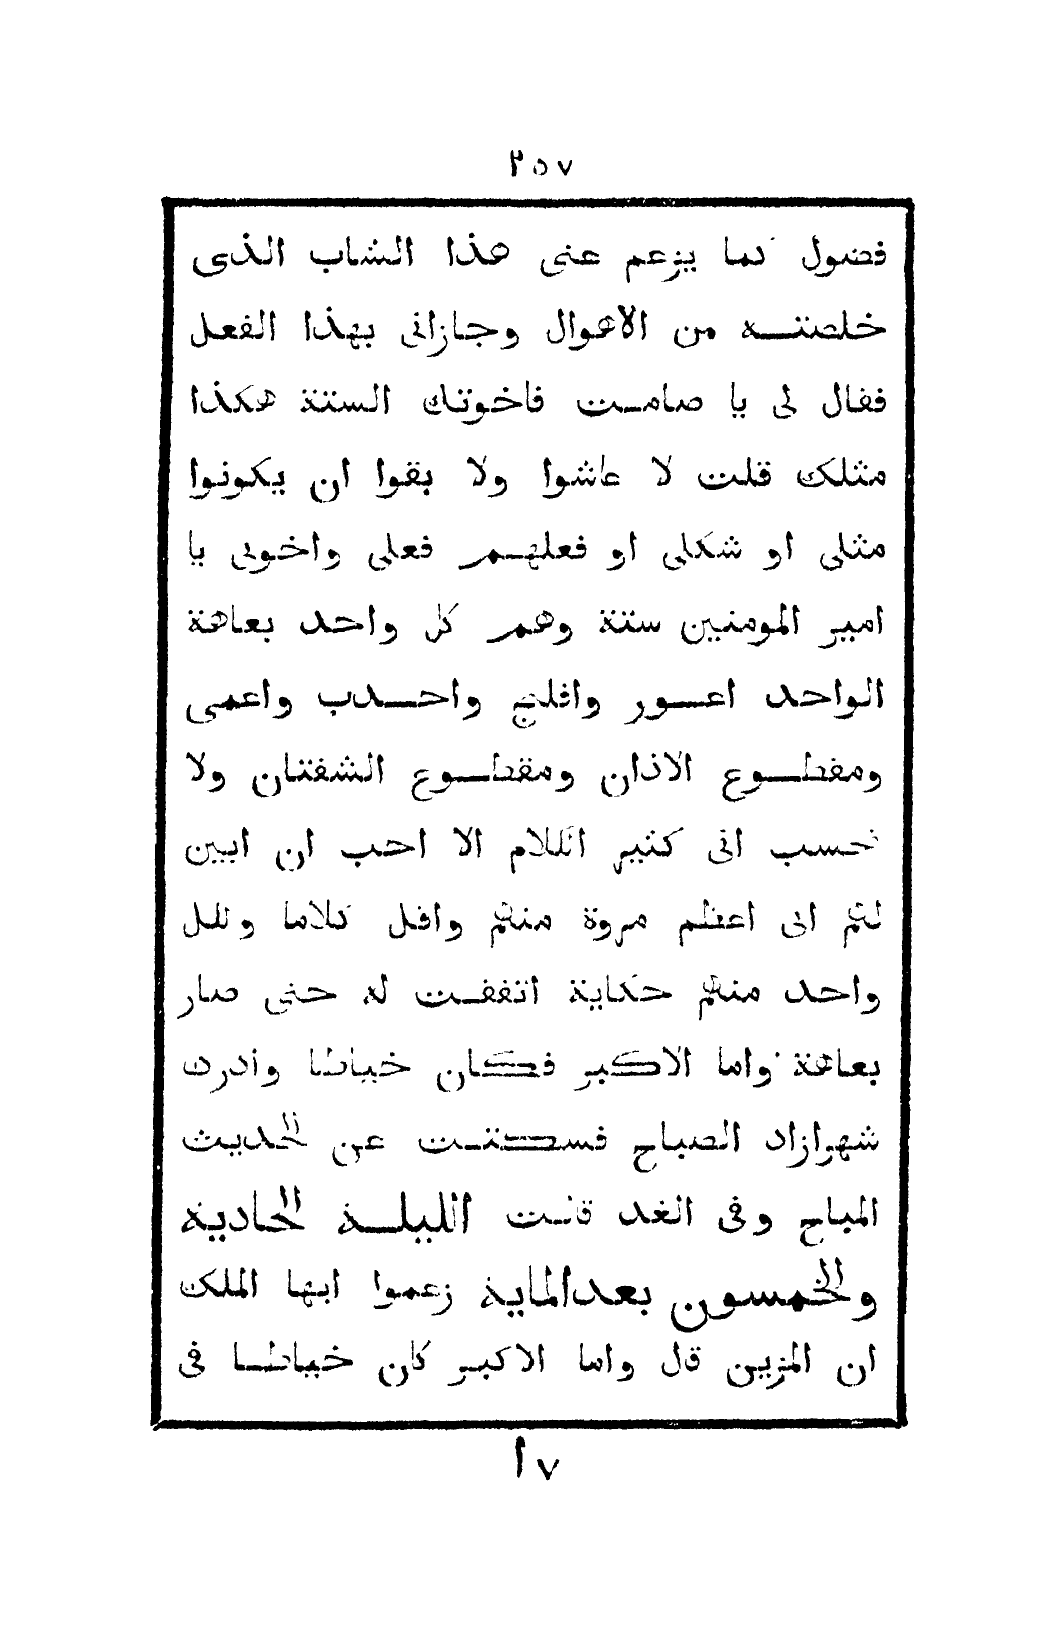 ٢٥٧
فضول كما يزعم عنى هذا الشاب الذى
خلصتــه من الاهوال وجازانى بهذا الفعل
فقال لى يا صامــت فاخوتك الستة هكذا
مثلك قلت لا عاشوا ولا بقوا ان يكونوا
مثلى او شكلى او فعلهــم فعلى واخوتى يا
امير المومنين ستة وهم كل واحد بعاهة
الواحد اعــور وافلج واحــدب واعمى
ومقطــوع الاذان ومقطــوع الشفتان ولا
تحسب انى كثير الكلام الا احب ان ابين
لكم انى اعظم مروة منكم واقل كلاما ولكل
واحد منكم حكاية اتفقــت له حتى صار
بعاهة واما الاكبر فكان خياطا وادرك
شهرازاد الصباح فسكتــت عن الحديث
المباح وفى الغد قالــت الليلــة الحادية
والخمسون بعدالماية زعموا ايها الملك
ان المزين قال واما الاكبر كان خياطــا فى
١٧